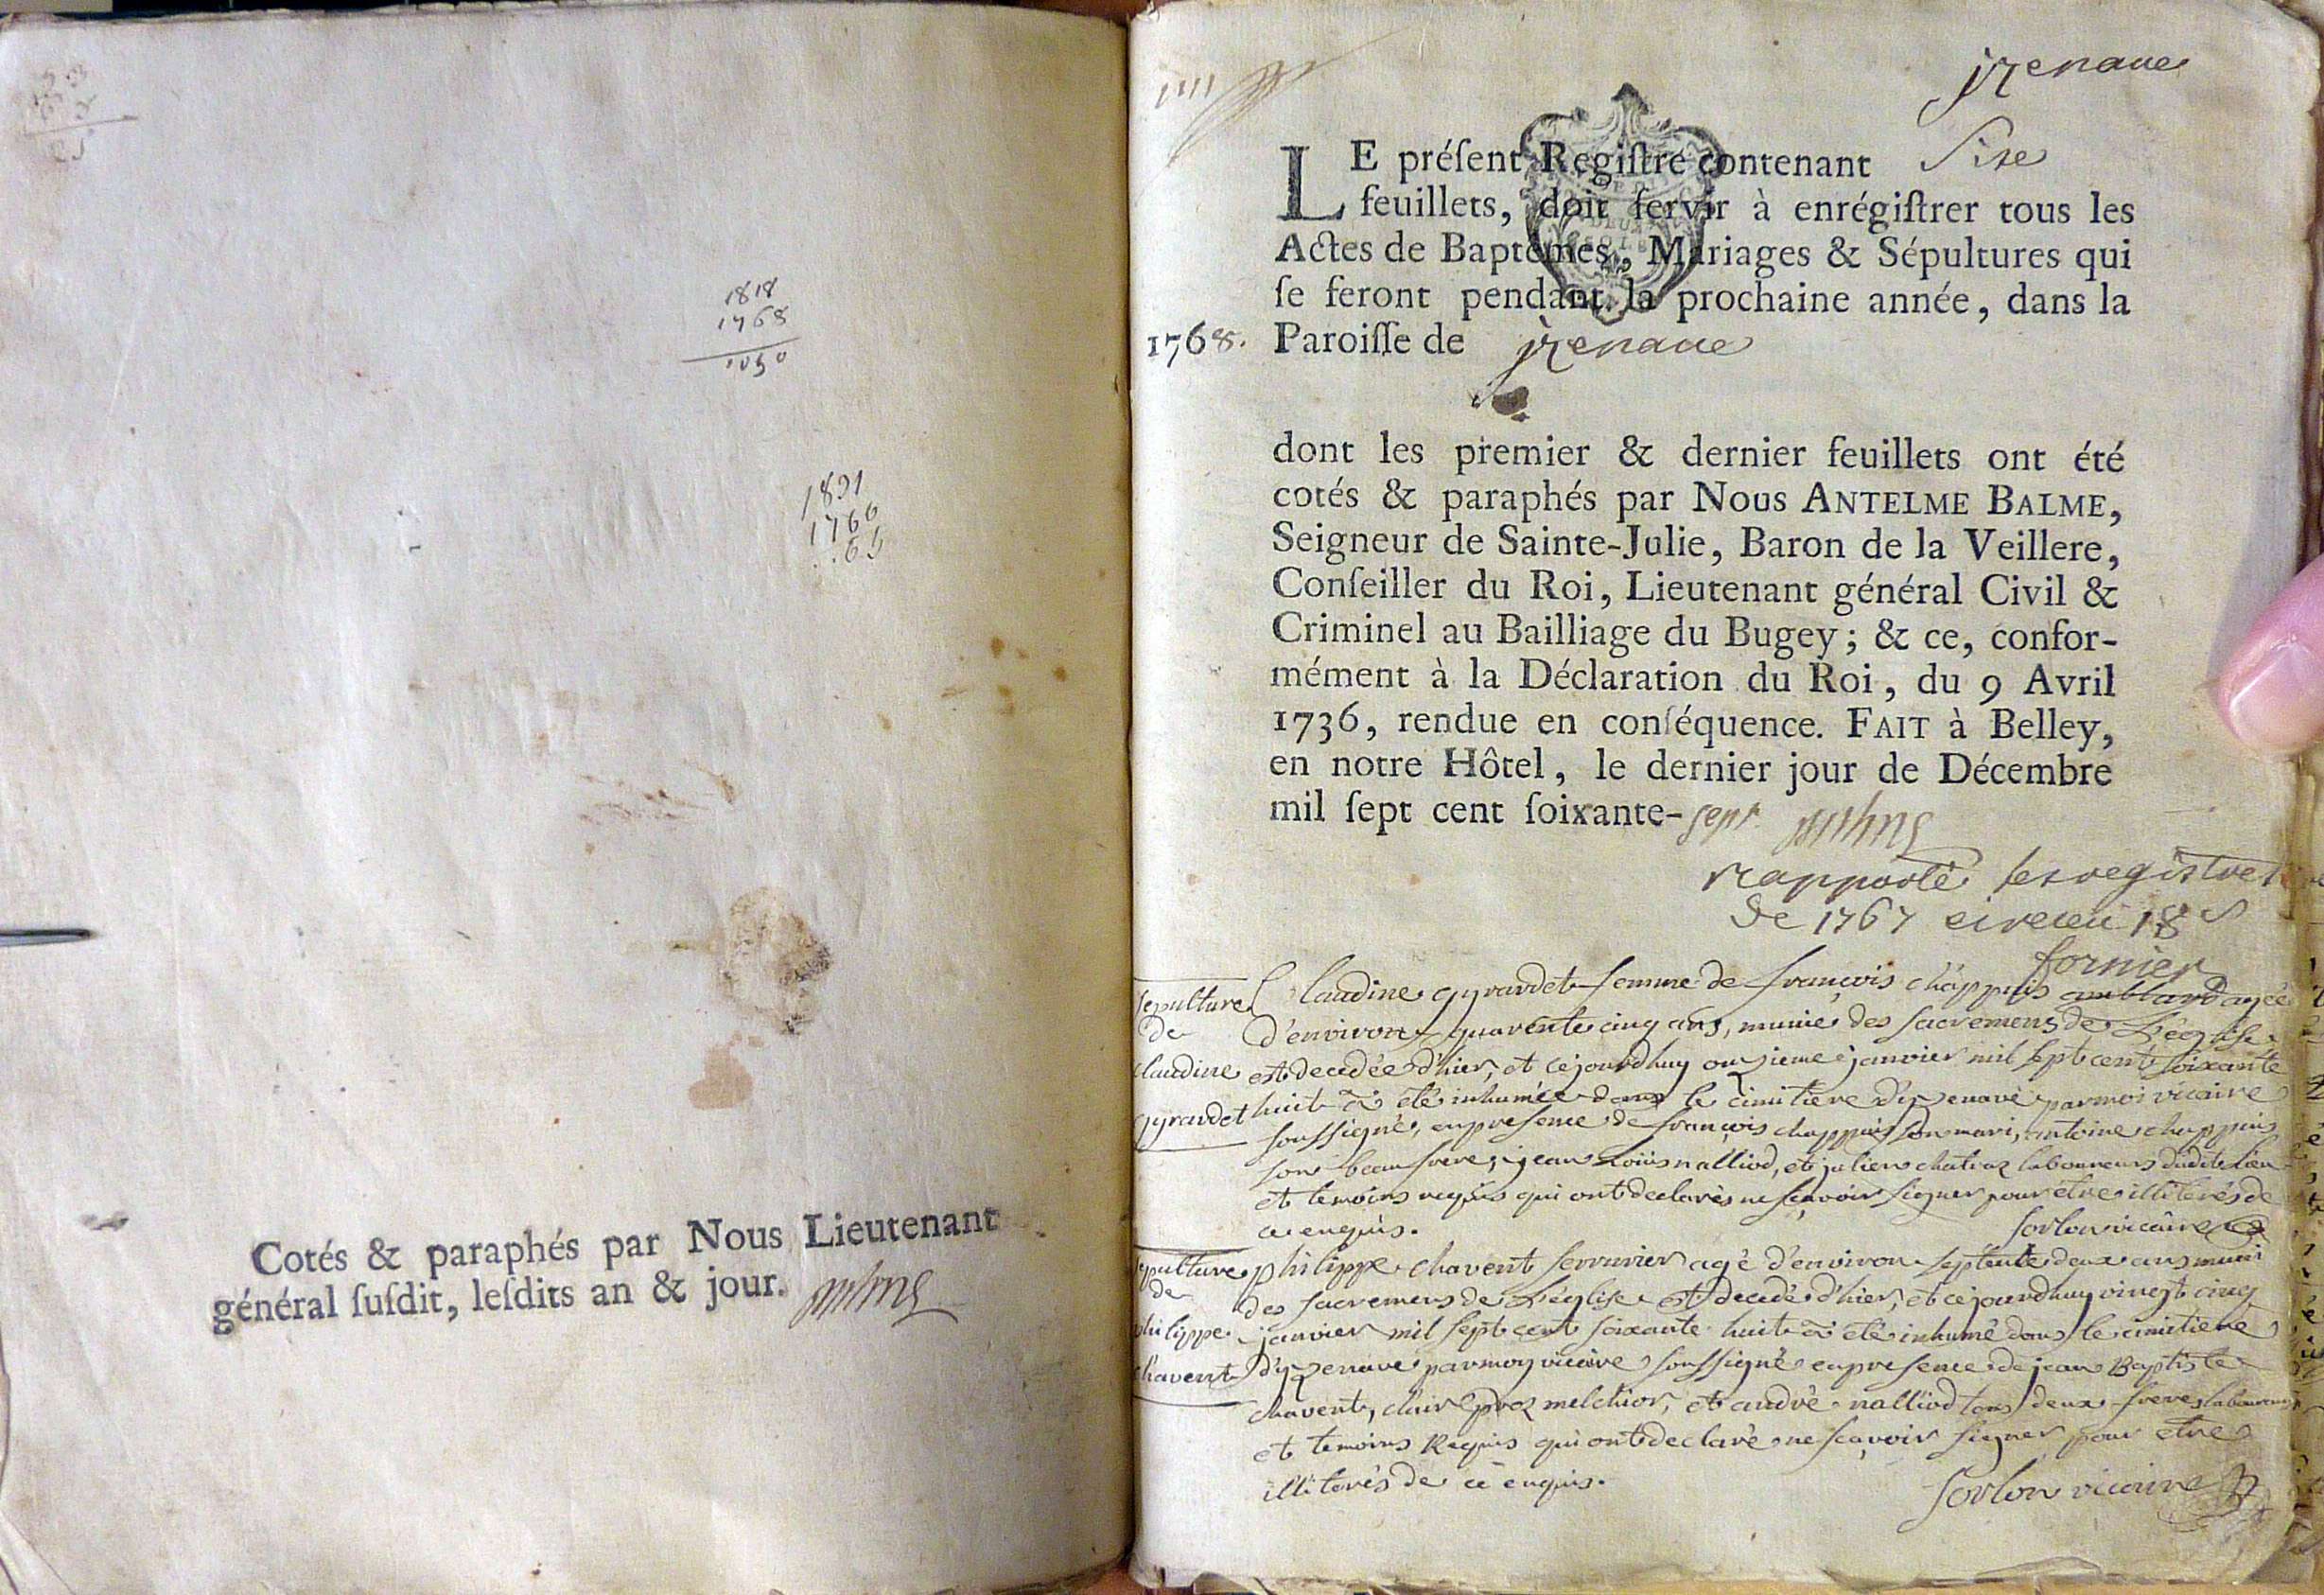 1818
1768
1050
1891
1766
..65
Cotés & paraphés par Nous Lieutenant
général ſuſdit, leſdits an & jour.
jzenave
LE préſent Regiſtre contenant Sise
feuillets, doit ſervir à enrégiſtrer tous les
Actes de Baptêmes, Mariages & Sépultures qui
ſe feront pendant la prochaine année, dans la
1768. Paroiſſe de jzenave
dont les premier & dernier feuillets ont été
cotés & paraphés par Nous ANTELME BALME,
Seigneur de Sainte-Julie, Baron de la Veillere,
Conſeiller du Roi, Lieutenant général Civil &
Criminel au Bailliage du Bugey; & ce, confor-
mément à la Déclaration du Roi, du 9 Avril
1736, rendue en conſéquence. FAIT à Belley,
en notre Hôtel, le dernier jour de Décembre
mil ſept cent ſoixante-sept
rapporté les registres
de 1767 et receu 18 s
fornier
sepulture Claudine gyrardet femme de françois chappuis amblard agée
de d'environ quarente cinq ans, munie des sacremens de L'église
claudine est decedée d'hier, et cejourdhuy onzieme janvier mil sept cent soixante
gyrardet huit à été inhumée dans le cimitiere d'yzenave par moi vicaire
soussigné, en presence de françois chappuis son mari, antoine chappuis
son beaufrere, jean Loüis nalliod, et julien chatraz laboureurs dudit lieu
et temoins requis qui ont declarés ne sçavoir signer pour être illiterés de
ce enquis. sorlon vicaire
sepulture philippe chavent serrurier agé d'environ septente deux ans muni
de des sacremens de L'église est decedé d'hier, et cejourdhuy vingt cinq
philippe janvier mil sept cent soixante huit à été inhumé dans le cimitiere
chavent d'yzenave par moy vicaire soussigné en presence de jean Baptiste
chavent, clair proz melchior, et andré nalliod tous deux freres laboureurs
et temoins Requis qui ont declaré ne sçavoir signer pour etre
illiterés de ce enquis.
sorlon vicaire